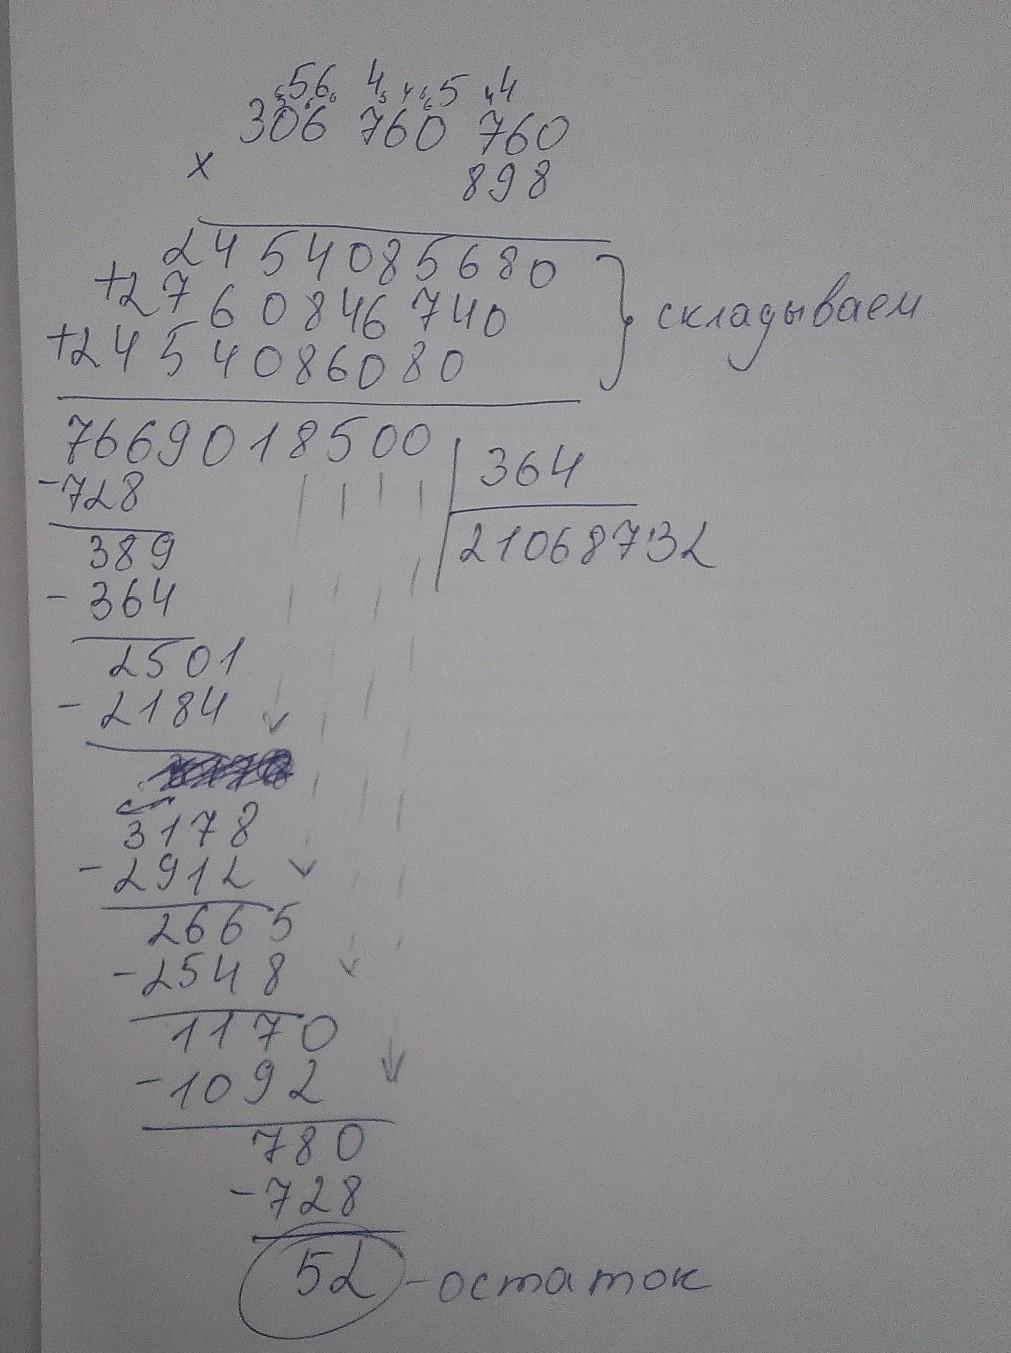 56 4 5 4
306 760 760
x 898
2454085680
+2760846740 складываем
+2454086080
7669018500 364
-728 21068732
389
-364
2501
-2184
3178
-2912
2665
-2548
1170
-1092
780
-728
52 - остаток